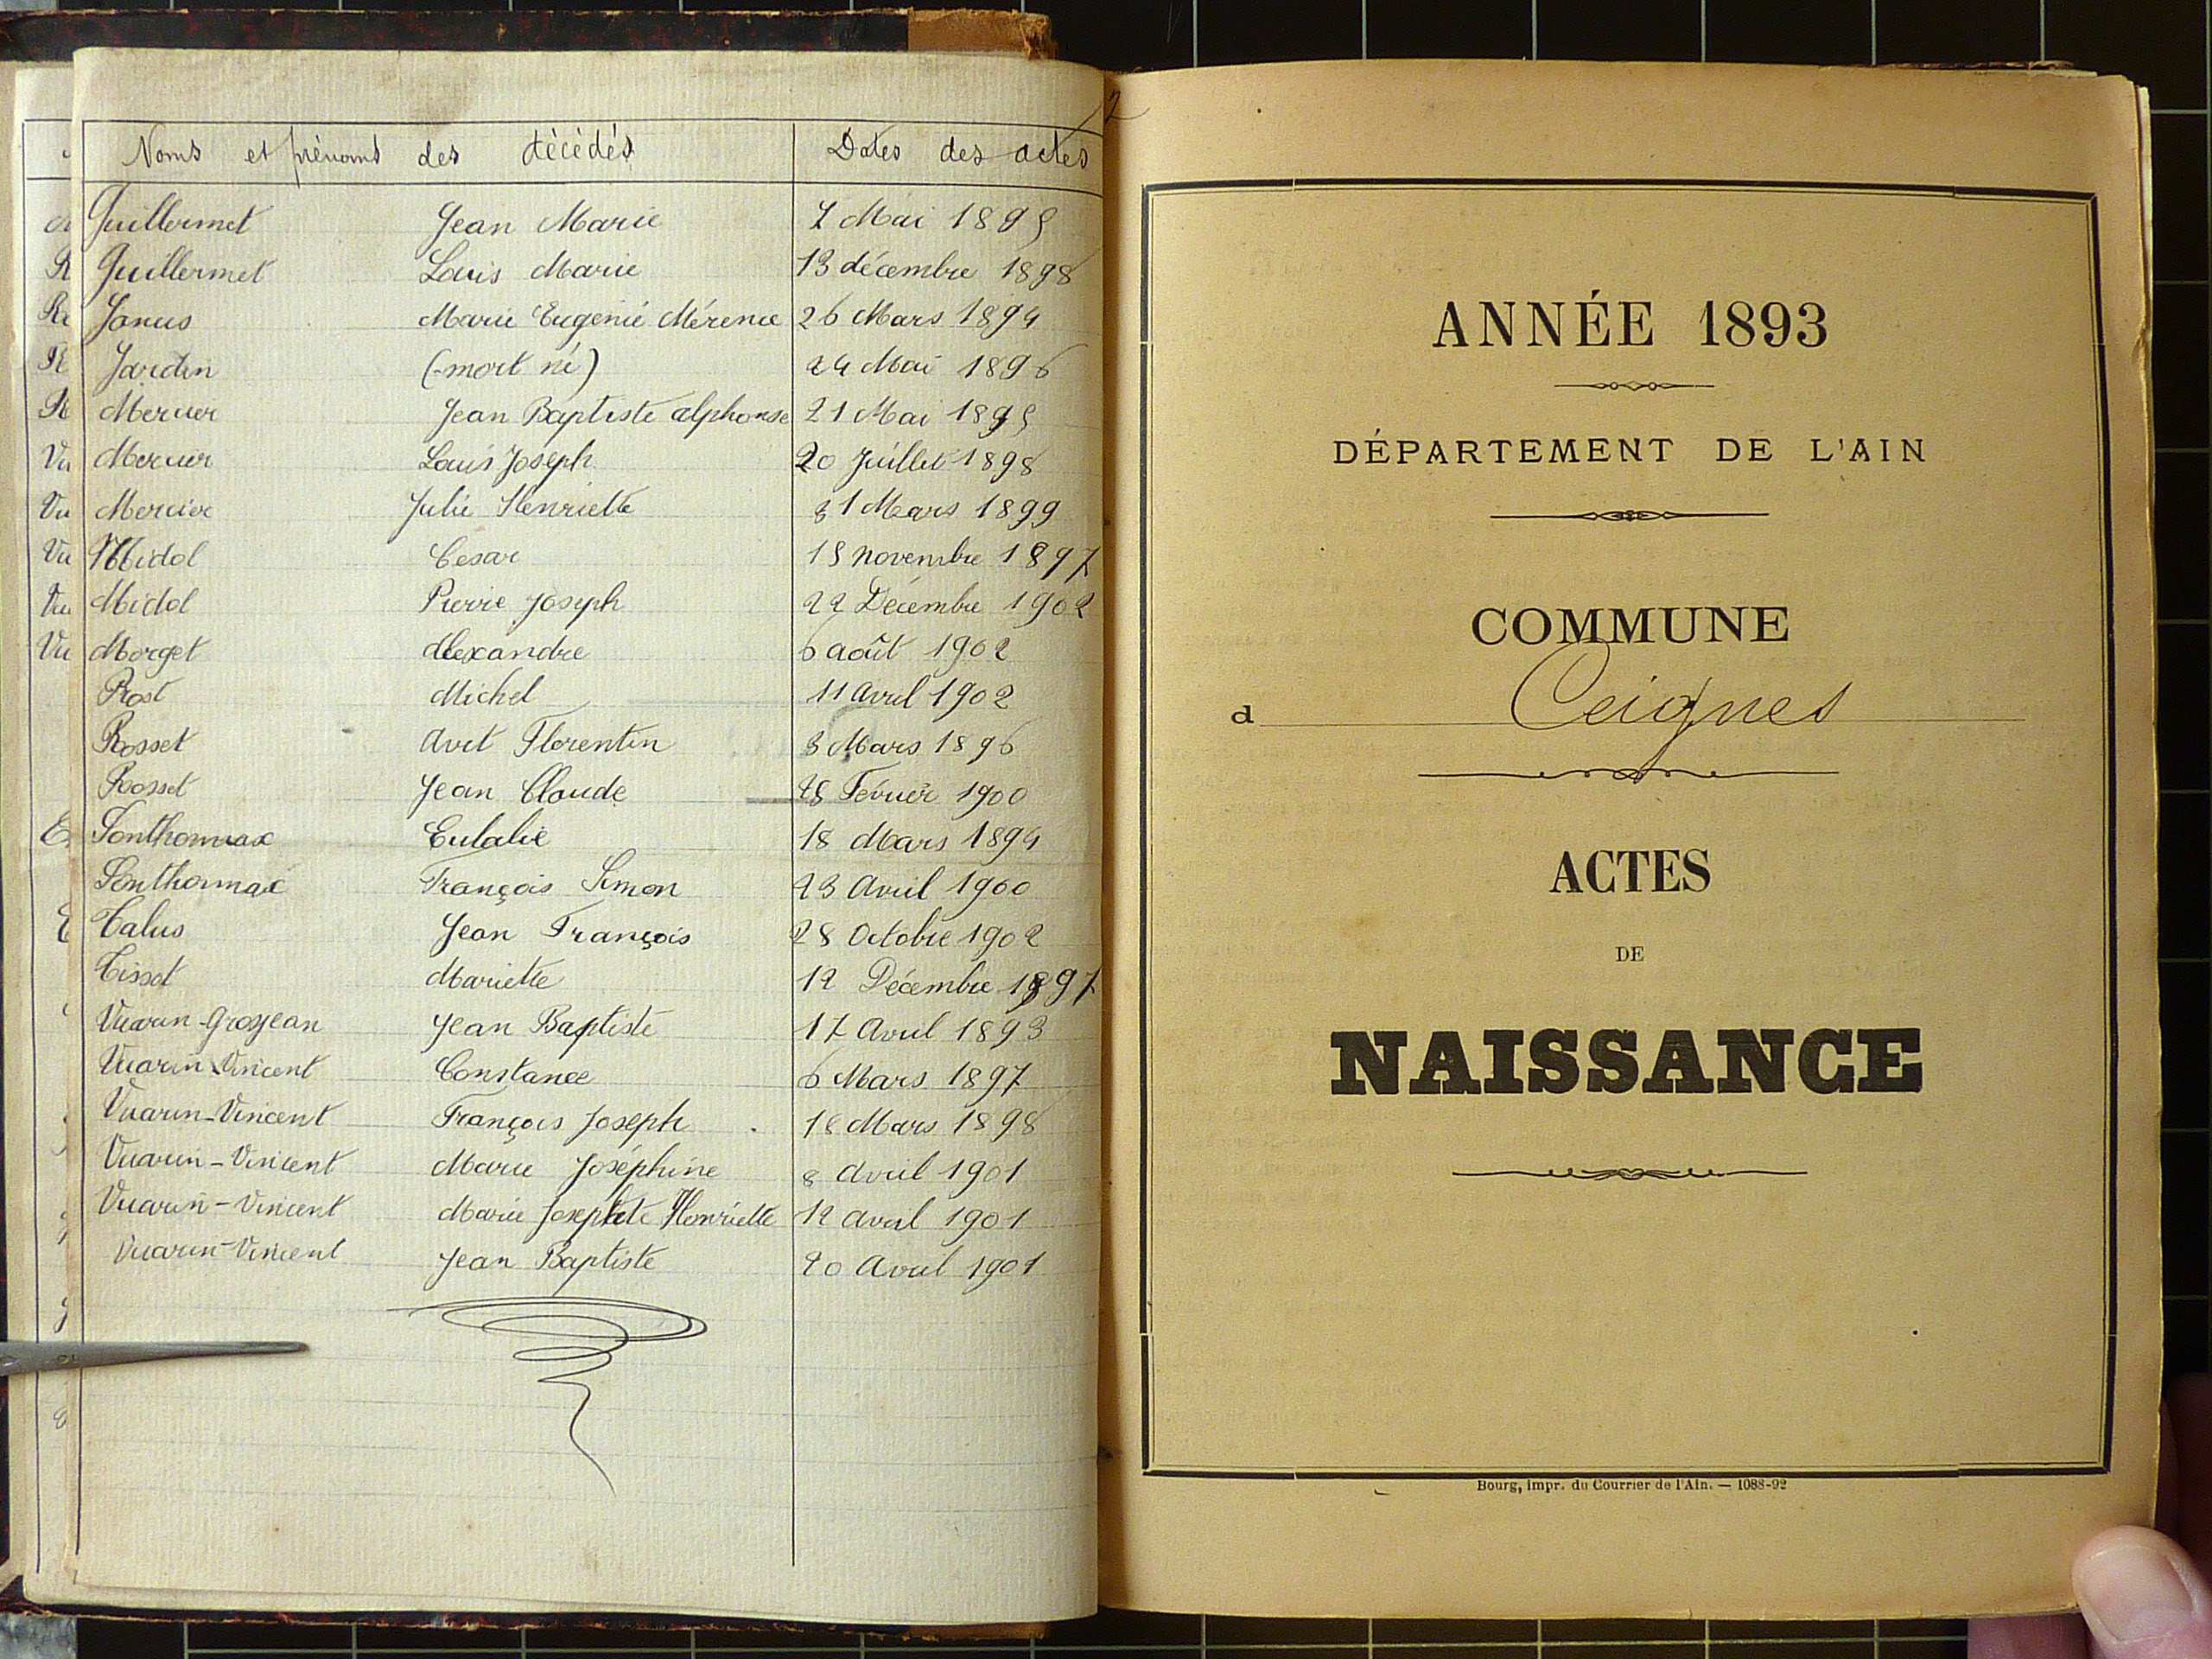 Noms et prénoms des décédés Dates des actes
Guillermet Jean Marie 7 Mai 1895
Guillermet Louis Marie 13 décembre 1898
Janus Marie Eugénie Mérence 26 Mars 1894
Jardin (mort né) 24 Mai 1896
Mercier Jean Baptiste alphonse 21 Mai 1895
Mercier Louis Joseph 20 Juillet 1898
Mercier Julie Henriette 31 Mars 1899
Midol Cesar 18 novembre 1897
Midol Pierre Joseph 22 Décembre 1902
Morget Alexandre 6 août 1902
Prost Michel 11 Avril 1902
Rosset Avit Florentin 3 Mars 1896
Rosset Jean Claude 28 Février 1900
Sonthonnax Eulalie 18 Mars 1894
Sonthonnax François Simon 23 Avril 1900
Talus Jean François 28 Octobre 1902
Tissot Mariette 12 Décembre 1897
Vuarin-Grosjean Jean Baptiste 17 Avril 1893
Vuarin-Vincent Constance 6 Mars 1897
Vuarin-Vincent François Joseph Mars 1898
Vuarin-Vincent Marie Joséphine 8 Avril 1901
Vuarin-Vincent Marie Josephte Henriette 12 Avril 1901
Vuarin-Vincent Jean Baptiste 20 Avril 1901
2
ANNÉE 1893
DÉPARTEMENT DE L'AIN
COMMUNE
d Ceignes
ACTES
DE
NAISSANCE
Bourg, impr. du Courrier de l'Ain. — 1088-92